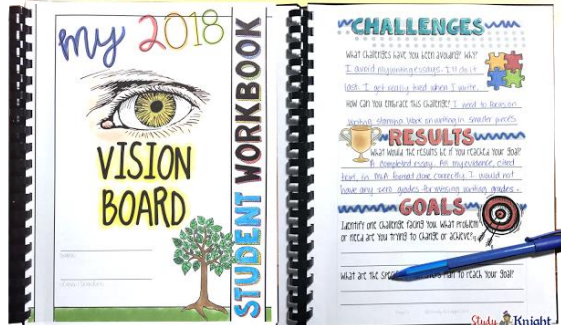 my 2018
VISION
BOARD
STUDENT WORKBOOK
NAME
CHALLENGES
What challenges have you been avoiding? Why?
I avoid my writing essays. I'll do it
last. I get really tired when I write.
How can you embrace this challenge? I need to focus on
writing stamina. Work on writing in smaller pieces.
RESULTS
What would the results be if you reached your goal?
A completed essay. All my evidence, cited
text, in MLA format done correctly. I would not
have any zero grades for missing writing grades.
GOALS
Identify one challenge facing you. What problem
or need are you trying to change or achieve?
What are the plan to reach your goal?
Study Knight